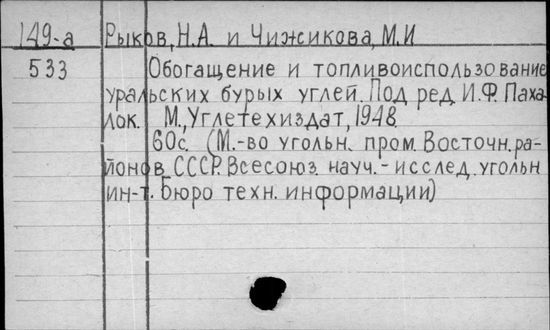 149-а Рыков, Н.А. и Чижикова, М.И
533 Обогащение и топливоиспользование
уральских бурых углей. Под ред. И.Ф. Паха-
лок. М., Углетехиздат, 1948.
60с. (М.-во угольн. пром. Восточн. ра-
йонов СССР. Всесоюз. науч.-исслед. угольн
ин-т. Бюро техн. информации)